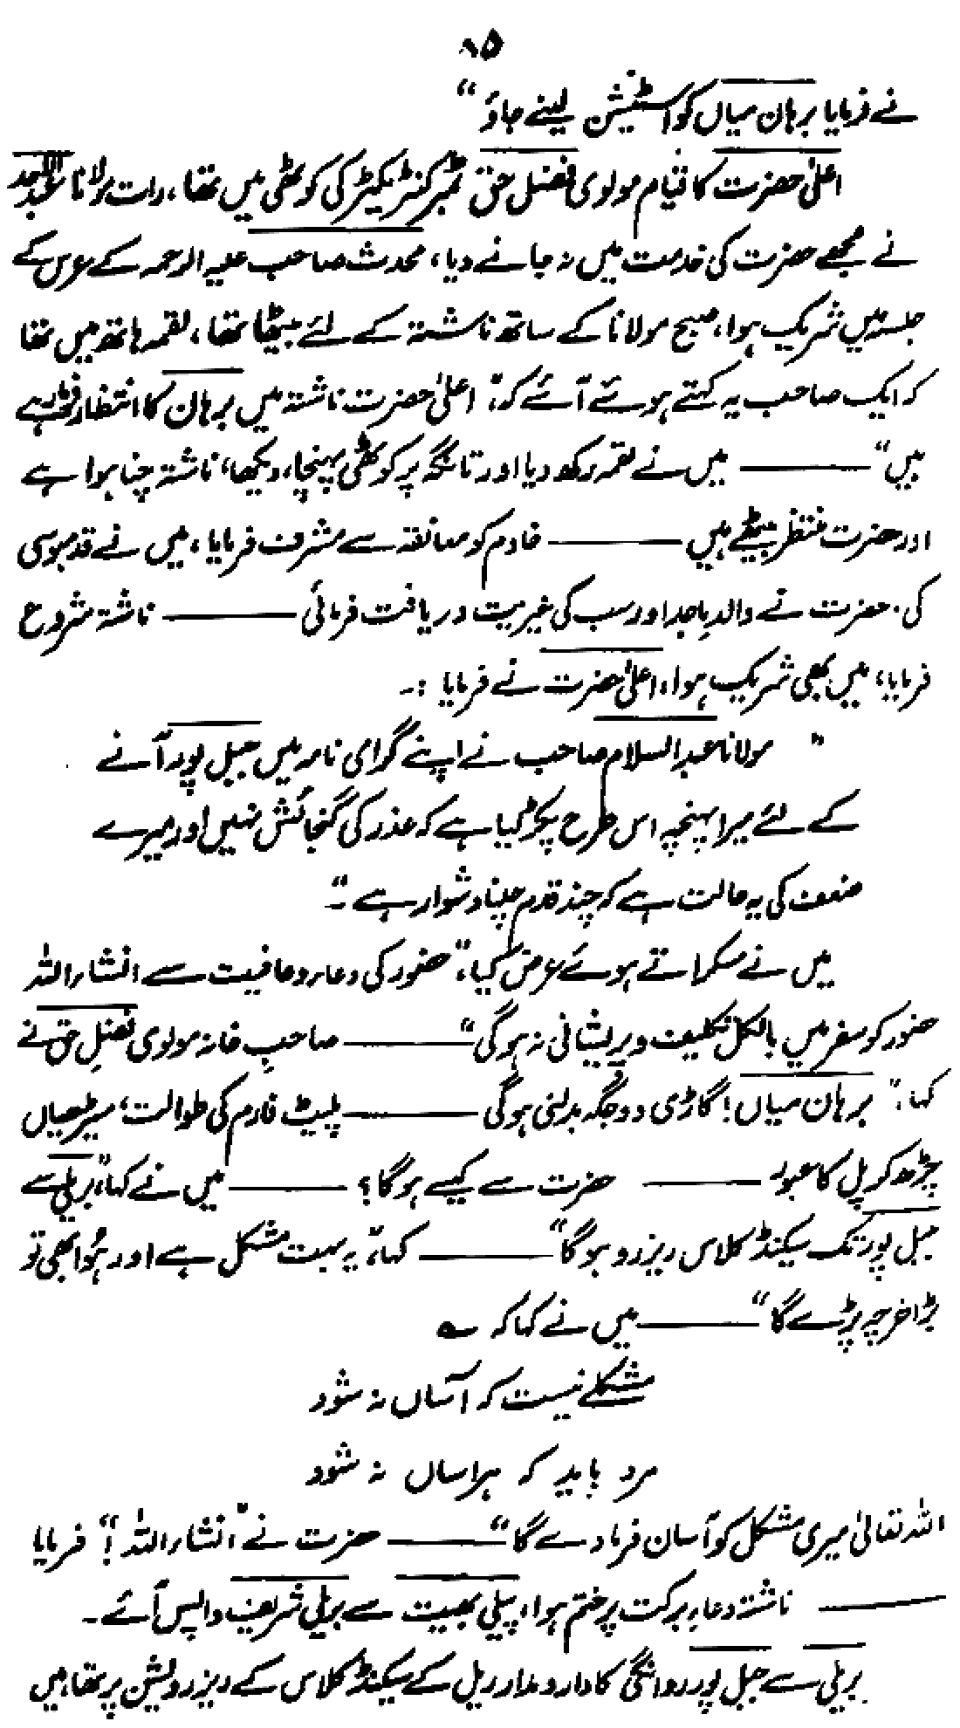 ۸۵
نے فرمایا برہان میاں کو اسٹیشن لینے جاؤ“
اعلیٰ حضرت کا قیام مولوی فضل حق ٹمبر کنٹریکٹر کی کوٹھی میں تھا، رات مولانا عبدالاحد
نے مجھے حضرت کی خدمت میں نہ جانے دیا، محدث صاحب علیہ الرحمہ کے عرس کے
جلسہ میں شریک ہوا، صبح مولانا کے ساتھ ناشتہ کے لئے بیٹھا تھا، لقمہ ہاتھ میں تھا
کہ ایک صاحب یہ کہتے ہوئے آئے کہ، ”اعلیٰ حضرت ناشتہ میں برہان کا انتظار فرما رہے
ہیں“ ——— میں نے لقمہ رکھ دیا اور تانگہ پر کوٹھی پہنچا، دیکھا، ناشتہ چنا ہوا ہے
اور حضرت منتظر بیٹھے ہیں ——— خادم کو معانقہ سے مشرف فرمایا، میں نے قدمبوسی
کی. حضرت نے والد ماجد اور سب کی خیریت دریافت فرمائی ——— ناشتہ شروع
فرمایا، میں بھی شریک ہوا، اعلیٰ حضرت نے فرمایا :۔
”مولانا عبدالسلام صاحب نے اپنے گرامی نامہ میں جبل پور آنے
کے لئے میرا پہنچہ اس طرح پکڑ لیا ہے کہ عذر کی گنجائش نہیں اور میرے
ضعف کی یہ حالت ہے کہ چند قدم چلنا دشوار ہے۔“
میں نے مسکراتے ہوئے عرض کیا، ”حضور کی دعاء و عافیت سے انشاء اللہ
حضور کو سفر میں بالکل تکلیف و پریشانی نہ ہوگی“ ——— صاحبِ خانہ مولوی فضلِ حق نے
کہا، ”برہان میاں! گاڑی دو جگہ بدلنی ہوگی ——— پلیٹ فارم کی طوالت، سیڑھیاں
چڑھ کر پل کا عبور ——— حضرت سے کیسے ہوگا؟ ——— میں نے کہا، ”بریلی سے
جبل پور تک سیکنڈ کلاس ریزرو ہوگا“ ——— کہا، ”یہ بہت مشکل ہے اور ہُوا بھی تو
بڑا خرچہ پڑے گا“ ——— میں نے کہا کہ ؎
مشکلے نیست کہ آساں نہ شود
مرد باید کہ ہراساں نہ شود
اللہ تعالیٰ میری مشکل کو آسان فرما دے گا“ ——— حضرت نے ”انشاء اللہ!“ فرمایا
——— ناشتہ دعاءِ برکت پر ختم ہوا، پیلی بھیت سے بریلی شریف واپس آئے۔
بریلی سے جبل پور روانگی کا دار و مدار ریل کے سیکنڈ کلاس کے ریزرویشن پر تھا، میں